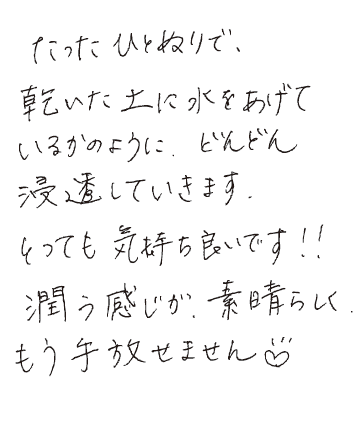 たったひとぬりで、
乾いた土に水をあげて
いるかのように、どんどん
浸透していきます.
とっても気持ち良いです!!
潤う感じが、素晴らしく、
もう手放せません